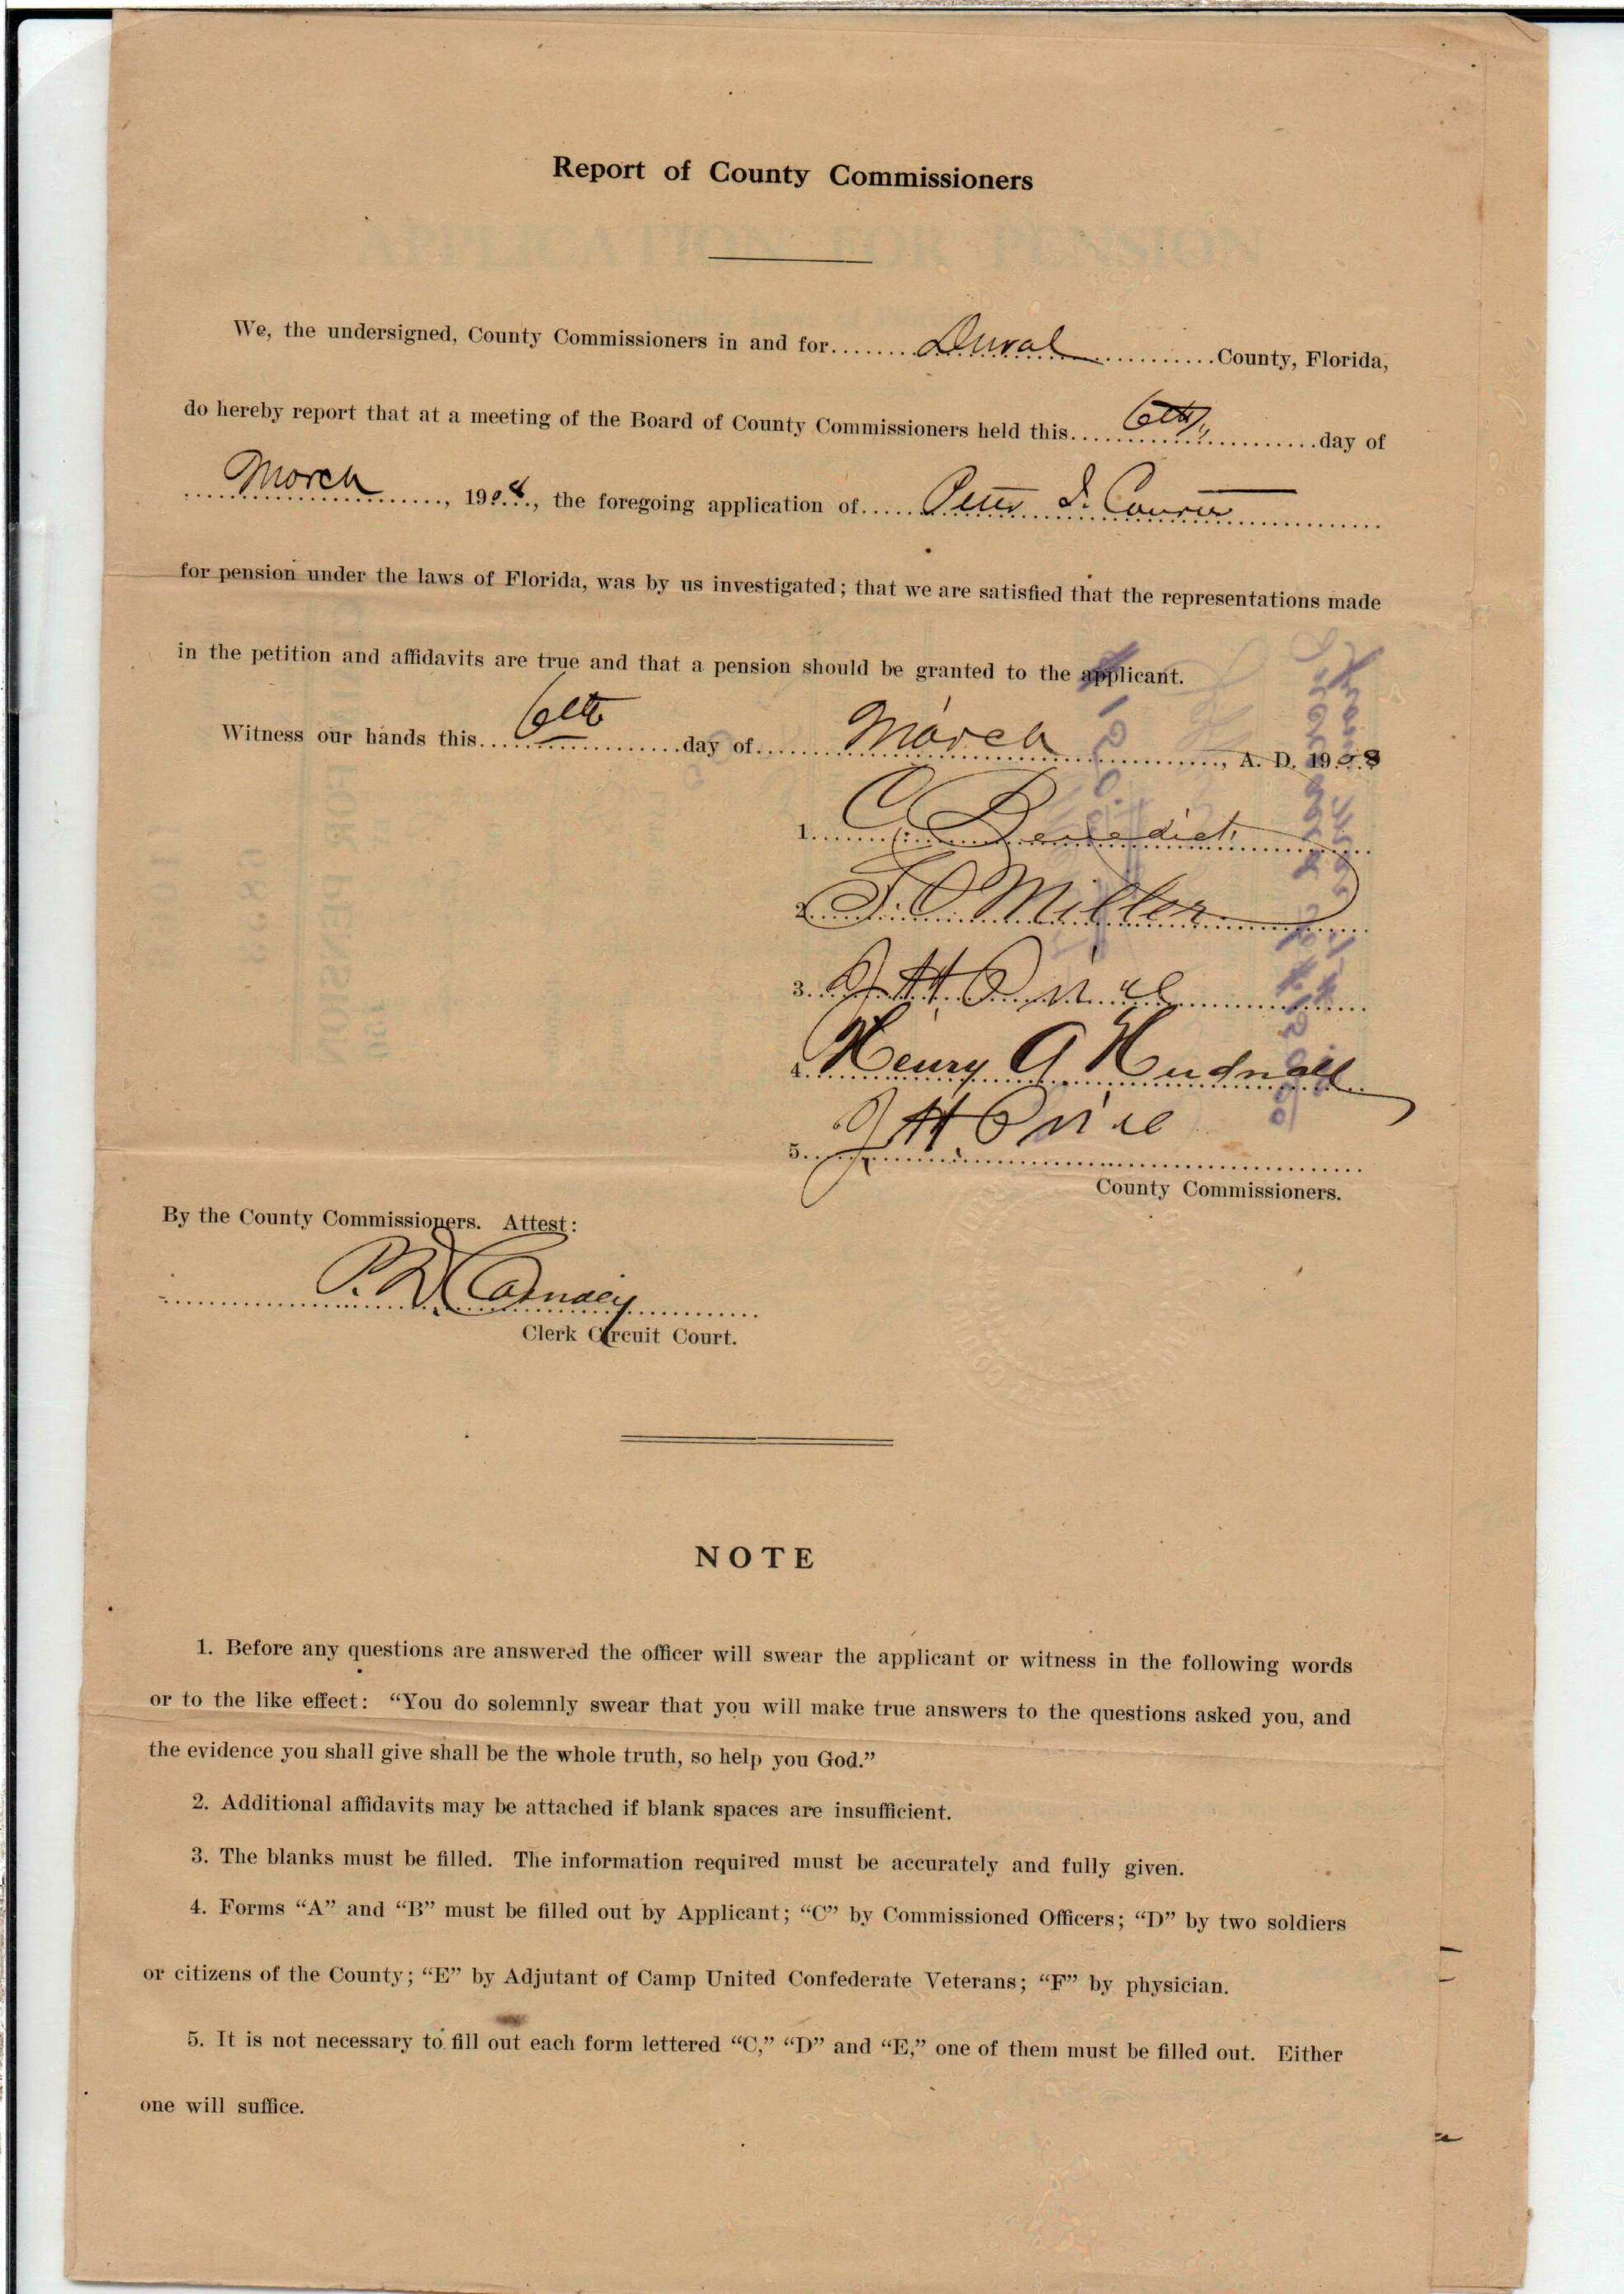 Report of County Commissioners
We, the undersigned, County Commissioners in and for........Duval...........County, Florida,
do hereby report that at a meeting of the Board of County Commissioners held this....6th............day of
March........, 1908., the foregoing application of.....Peter
for pension under the laws of Florida, was by us investigated; that we are satisfied that the representations made
in the petition and affidavits are true and that a pension should be granted to the applicant.
Witness our hands this....6th............day of.......March............, A. D. 1908
1. Benedict
2. Miller
3.
4. Henry A Hudnall
5.
County Commissioners.
By the County Commissioners. Attest:
P. D. Cassidey
Clerk Circuit Court.
NOTE
1. Before any questions are answered the officer will swear the applicant or witness in the following words
or to the like effect: “You do solemnly swear that you will make true answers to the questions asked you, and
the evidence you shall give shall be the whole truth, so help you God.”
2. Additional affidavits may be attached if blank spaces are insufficient.
3. The blanks must be filled. The information required must be accurately and fully given.
4. Forms “A” and “B” must be filled out by Applicant; “C” by Commissioned Officers; “D” by two soldiers
or citizens of the County; “E” by Adjutant of Camp United Confederate Veterans; “F” by physician.
5. It is not necessary to fill out each form lettered “C,” “D” and “E,” one of them must be filled out. Either
one will suffice.